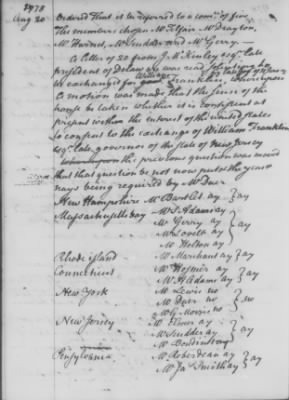 1778
Aug 20
Ordered That it be referred to a comee of five
The members chosen Mr Telfair Mr Drayton,
Mr Harvie, Mr Scudder and Mr Gerry.
A letter of 20 from J. McKinley esqr late
president of Delaware was read soliciting to
be exchanged for William Franklin
Whereupon
A motion was made that the sense of the
house be taken whether it is consistent at
present with the interest of the united states
to consent to the exchange of William Franklin
esqr late governor of the state of New Jersey
the previous question was moved
that that question be not now put & the yeas &
nays being required by Mr Duer
New Hampshire Mr Bartlet ay } ay
Massachusetts bay Mr S Adams ay
Mr Gerry ay
Mr Lovell ay } ay
Mr Holten ay
Rhode island Mr Marchant ay } ay
Connecticut Mr Hosmer ay
Mr A Adams ay } ay
New York Mr Lewis no
Mr Duer no } no
Mr G Morris no
New Jersey Mr Elmer ay
Mr Scudder ay } ay
Pensylvania Mr Roberdeau ay
Mr Ja Smith ay } ay